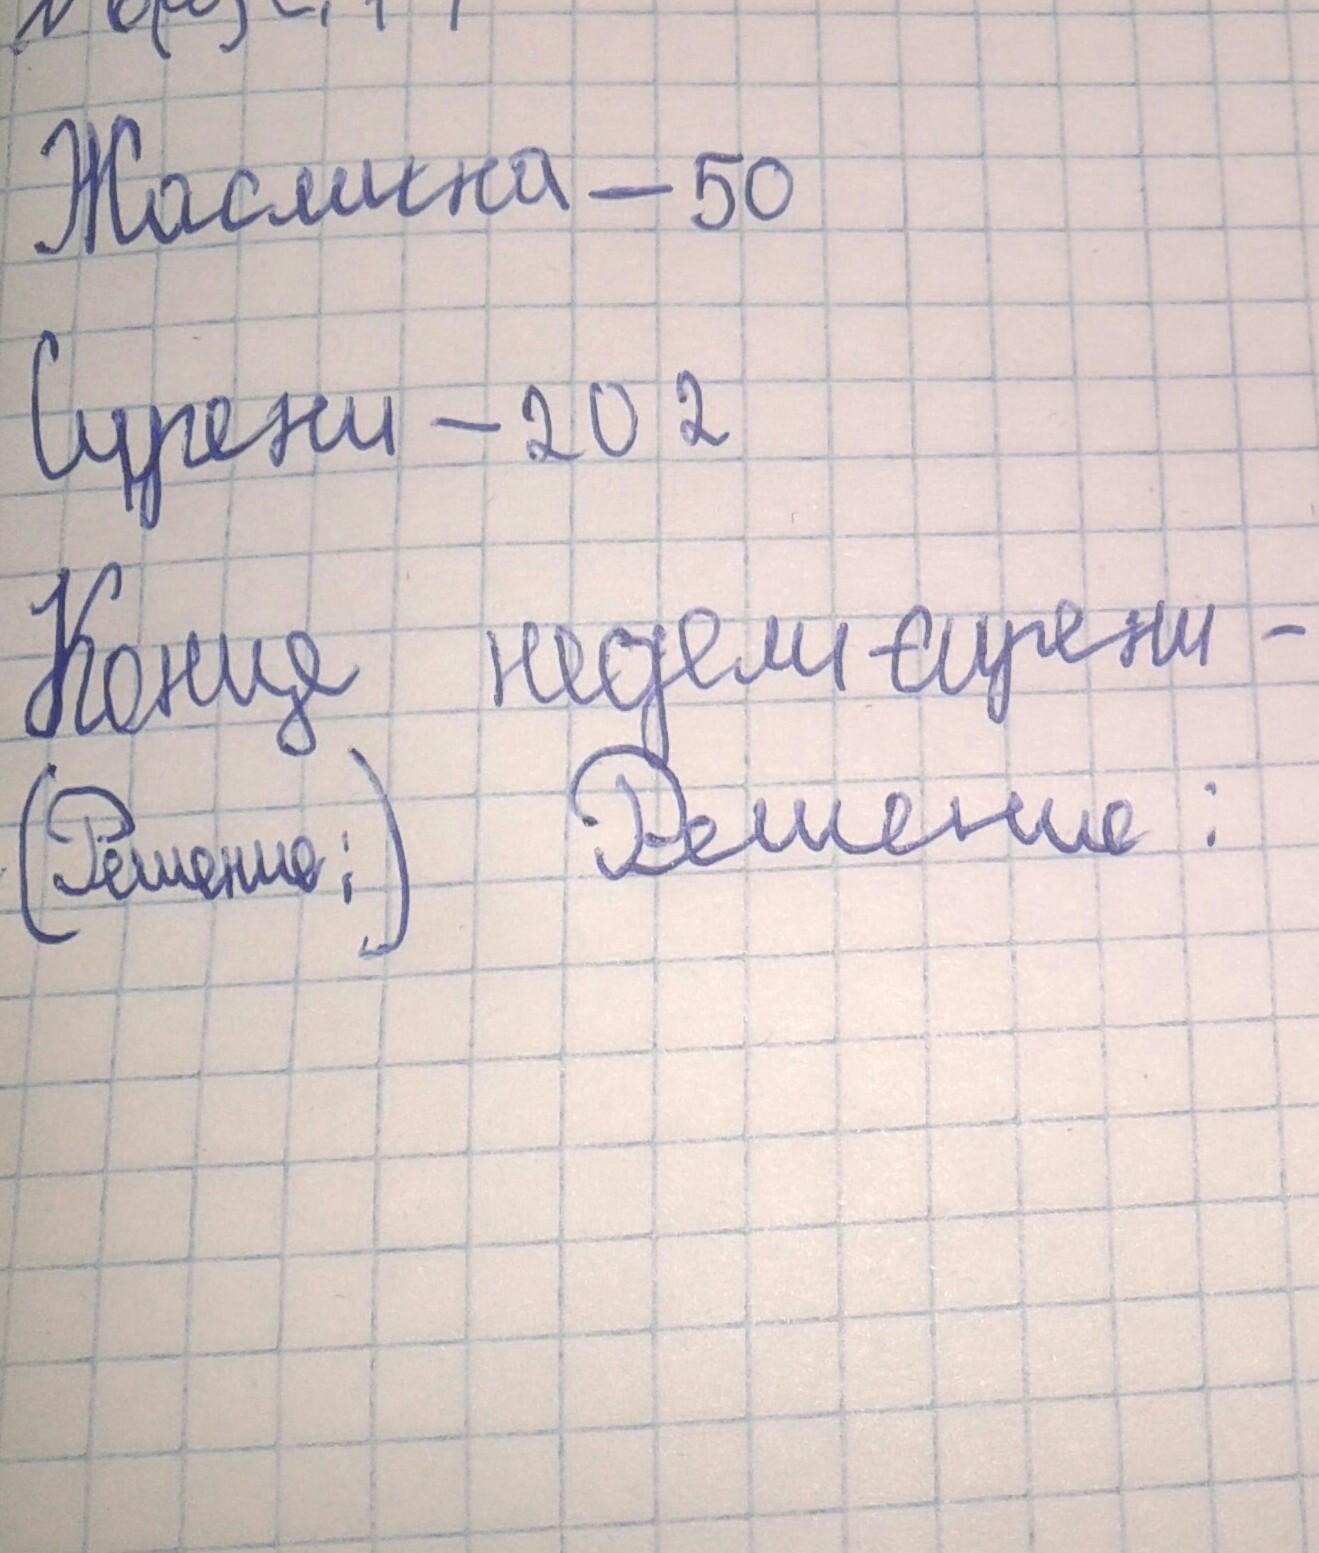 Жасмина – 50
Сирени – 202
Конце недели - сирени -
(Решение;) Решение: